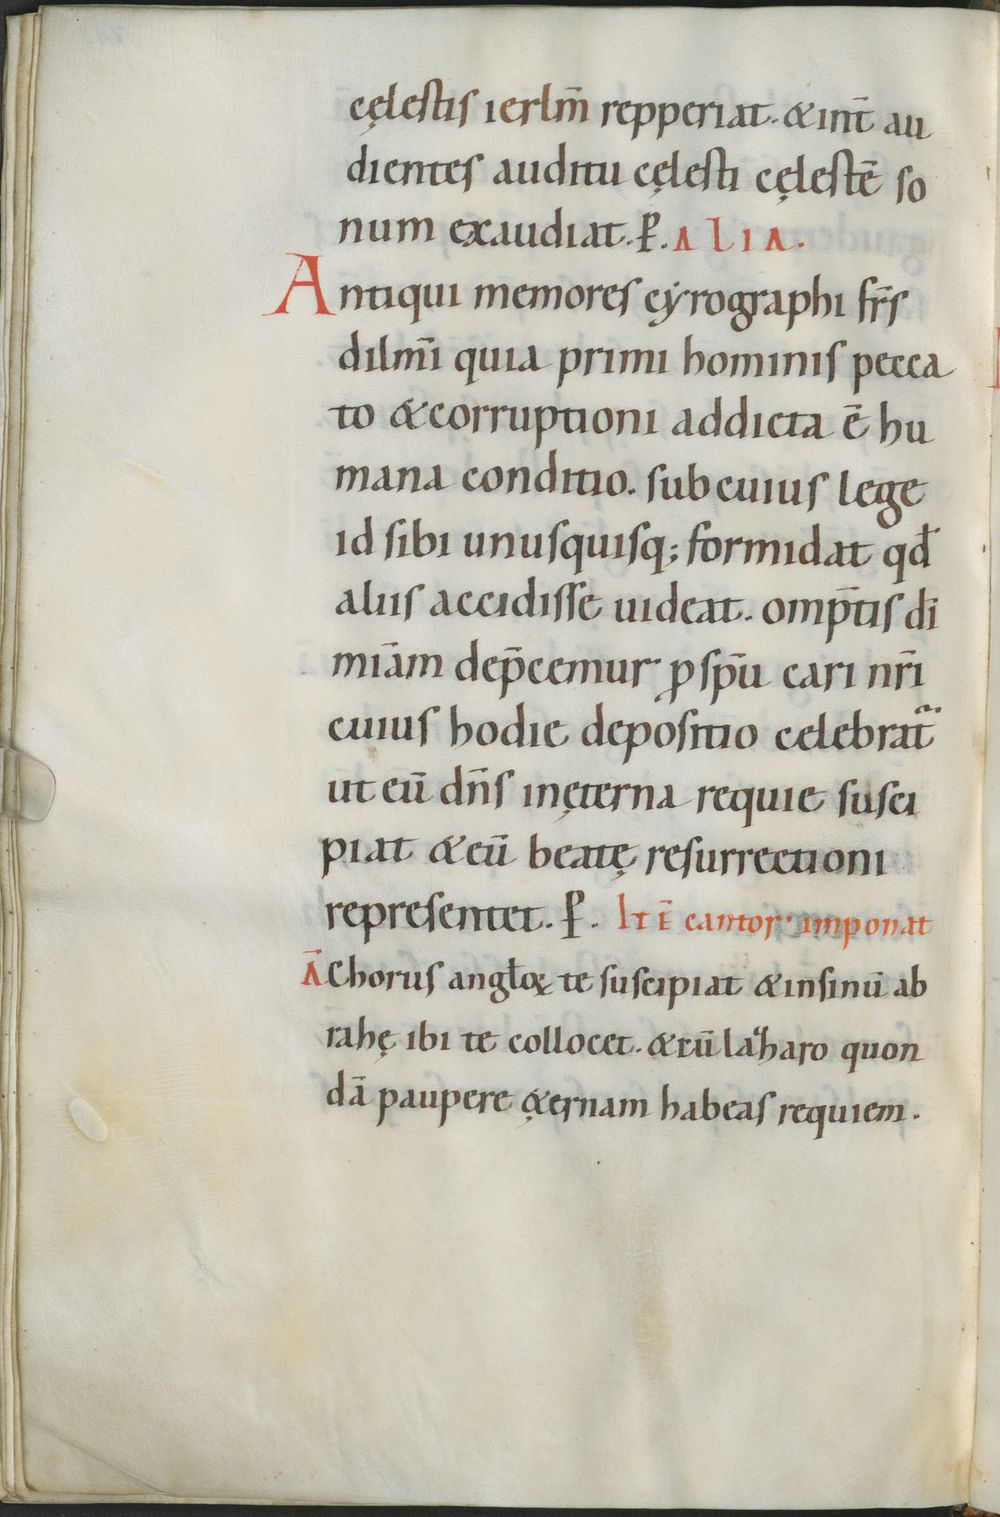 cęlestis ierlm̄ repperiat. & int̄ au
dientes auditu cęlesti cęlestē so
num exaudiat. P̱. ALIA.
Antiqui memores cyrographi fr̄s
dilm̄i quia primi hominis pecca
to & corruptioni addicta ē hu
mana conditio. sub cuius lege
id sibi unusquisq; formidat qd̄
aliis accidisse uideat. omp̄tis dī
miām dep̄cemur ꝑ sp̄u cari nr̄i
cuius hodie depositio celebrat̄
ut eū dn̄s in ęterna requie susci
piat & eū beatę resurrectioni
representet. P̱. It ē cantor imponat
Ā Chorus anglōꝝ te suscipiat & insinū ab
rahę ibi te collocet. & cū lazharo quon
dā paupere ę&ernam habeas requiem.